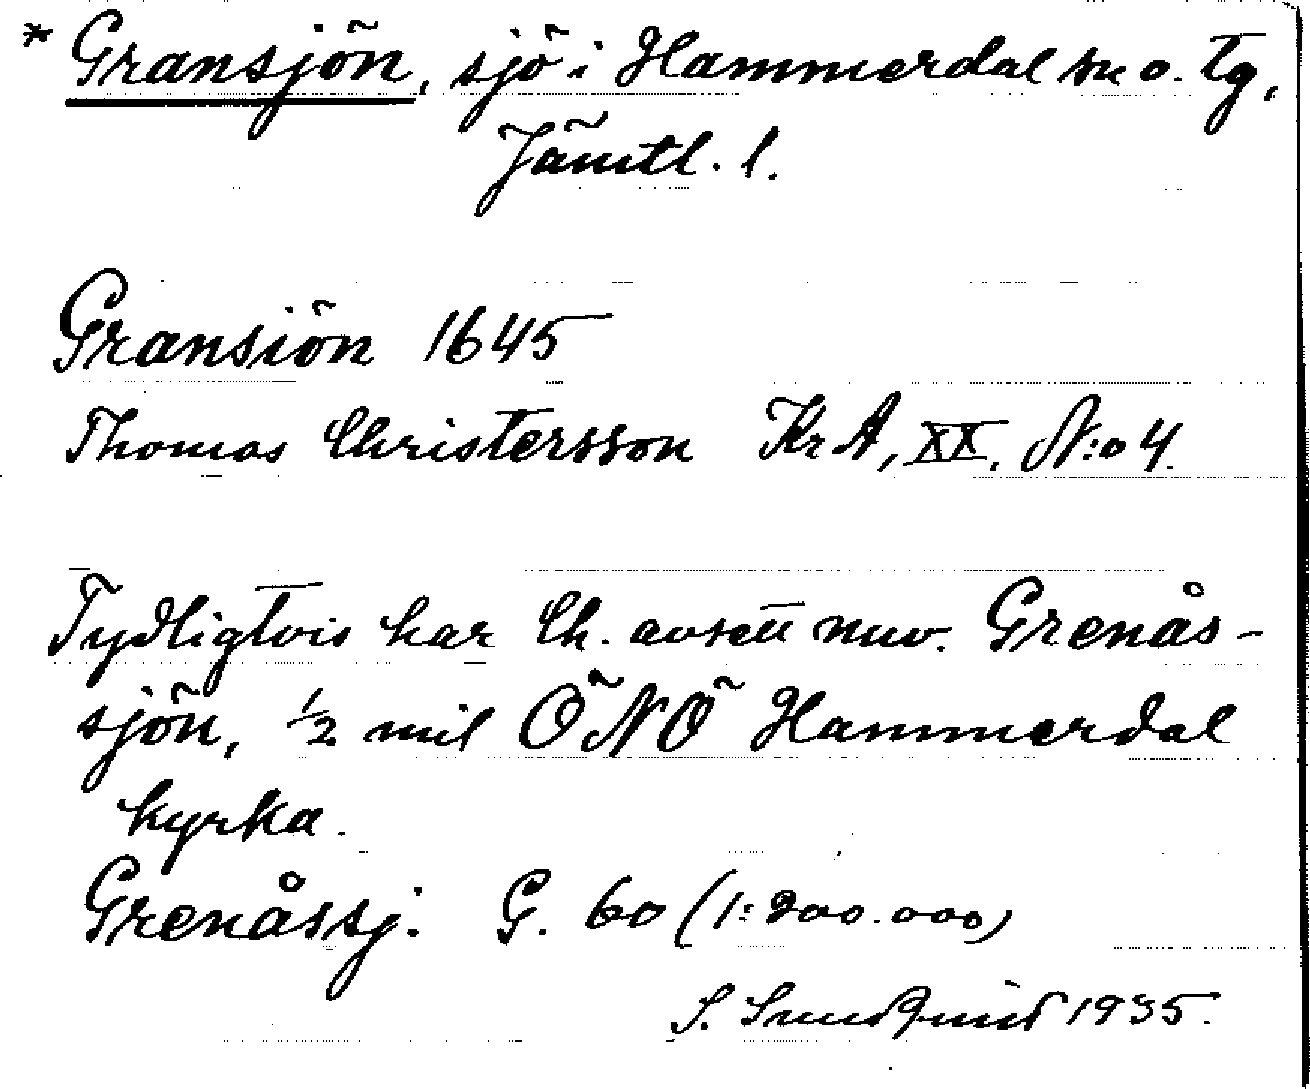 * Gransjön, sjö i Hammerdal sn o. tg,
Jämtl. l.
Gransiön 1645
Thomas Christersson Kr A, XX, N:o 4.
Tydligtvis har Ch. avsett nuv. Grenås-
sjön, 1/2 mil ÖNÖ Hammerdal
kyrka.
Grenåssj. G. 60 (1:200.000)
S. Sundquist 1935.